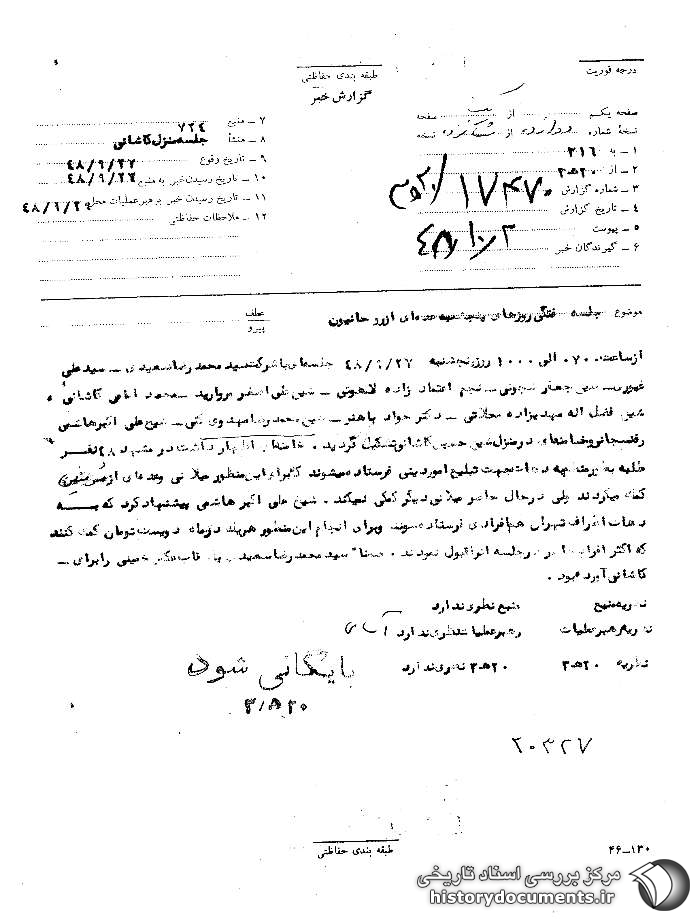 درجه فوریت
طبقه بندی حفاظتی
گزارش خبر
صفحه یکم از یک صفحه
نسخهٔ شماره از نسخه
۱ – به ۳۱۶
۲ – از ۲۰هـ۳
۳ – شماره گزارش ۱۷۴۷۰
۴ – تاریخ گزارش
۵ – پیوست
۶ – گیرندگان خبر
۷ – منبع ۷۲۴
۸ – منشأ جلسه منزل کاشانی
۹ – تاریخ وقوع ۴۸/۹/۲۷
۱۰ – تاریخ رسیدن خبر به منبع
۱۱ – تاریخ رسیدن خبر برهبر عملیات محل
۱۲ – ملاحظات حفاظتی
موضوع جلسه هفتگی روزهای پنجشنبه عده‌ای از روحانیون
عطف
پیرو
از ساعت ۰۷۰۰ الی ۱۰۰۰ روز پنجشنبه ۴۸/۹/۲۷ جلسه‌ای با شرکت سید محمد رضا سعیدی – سید علی
شیخ جعفر شجونی – نجم اعتماد زاده لاهوتی – شیخ علی اصغر مروارید – محمد امامی کاشانی
شیخ فضل اله مهدیزاده محلاتی – دکتر جواد باهنر – شیخ محمد رضا مهدوی کنی – شیخ علی اکبر هاشمی
رفسنجانی و خامنه‌ای در منزل شیخ حسین کاشانی تشکیل گردید. خامنه‌ای اظهار داشت در مشهد ۴۸ نفر
طلبه بطور همیشه دهات جهت تبلیغ امور دینی فرستاده میشوند که برای این منظور میلانی و عده‌ای از
کمک میکردند ولی در حال حاضر میلانی دیگر کمکی نمیکند. شیخ علی اکبر هاشمی پیشنهاد کرد که به
دهات اطراف تهران هم افرادی فرستاده شوند و برای انجام این منظور هر یک در ماه دویست تومان کمک کنند
که اکثر افراد حاضر در جلسه آنرا قبول نمودند. ضمناً سید محمد رضا سعیدی یک قاب عکس خمینی را برای –
کاشانی آورده بود.
نظریه منبع منبع نظری ندارد
نظریه رهبر عملیات رهبر عملیات نظری ندارد
نظریه ۲۰هـ۳ ۲۰هـ۳ نظری ندارد
بایگانی شود
۲۰۳۲۷
طبقه بندی حفاظتی
۴۶–۱۳۰
مرکز بررسی اسناد تاریخی
historydocuments.ir